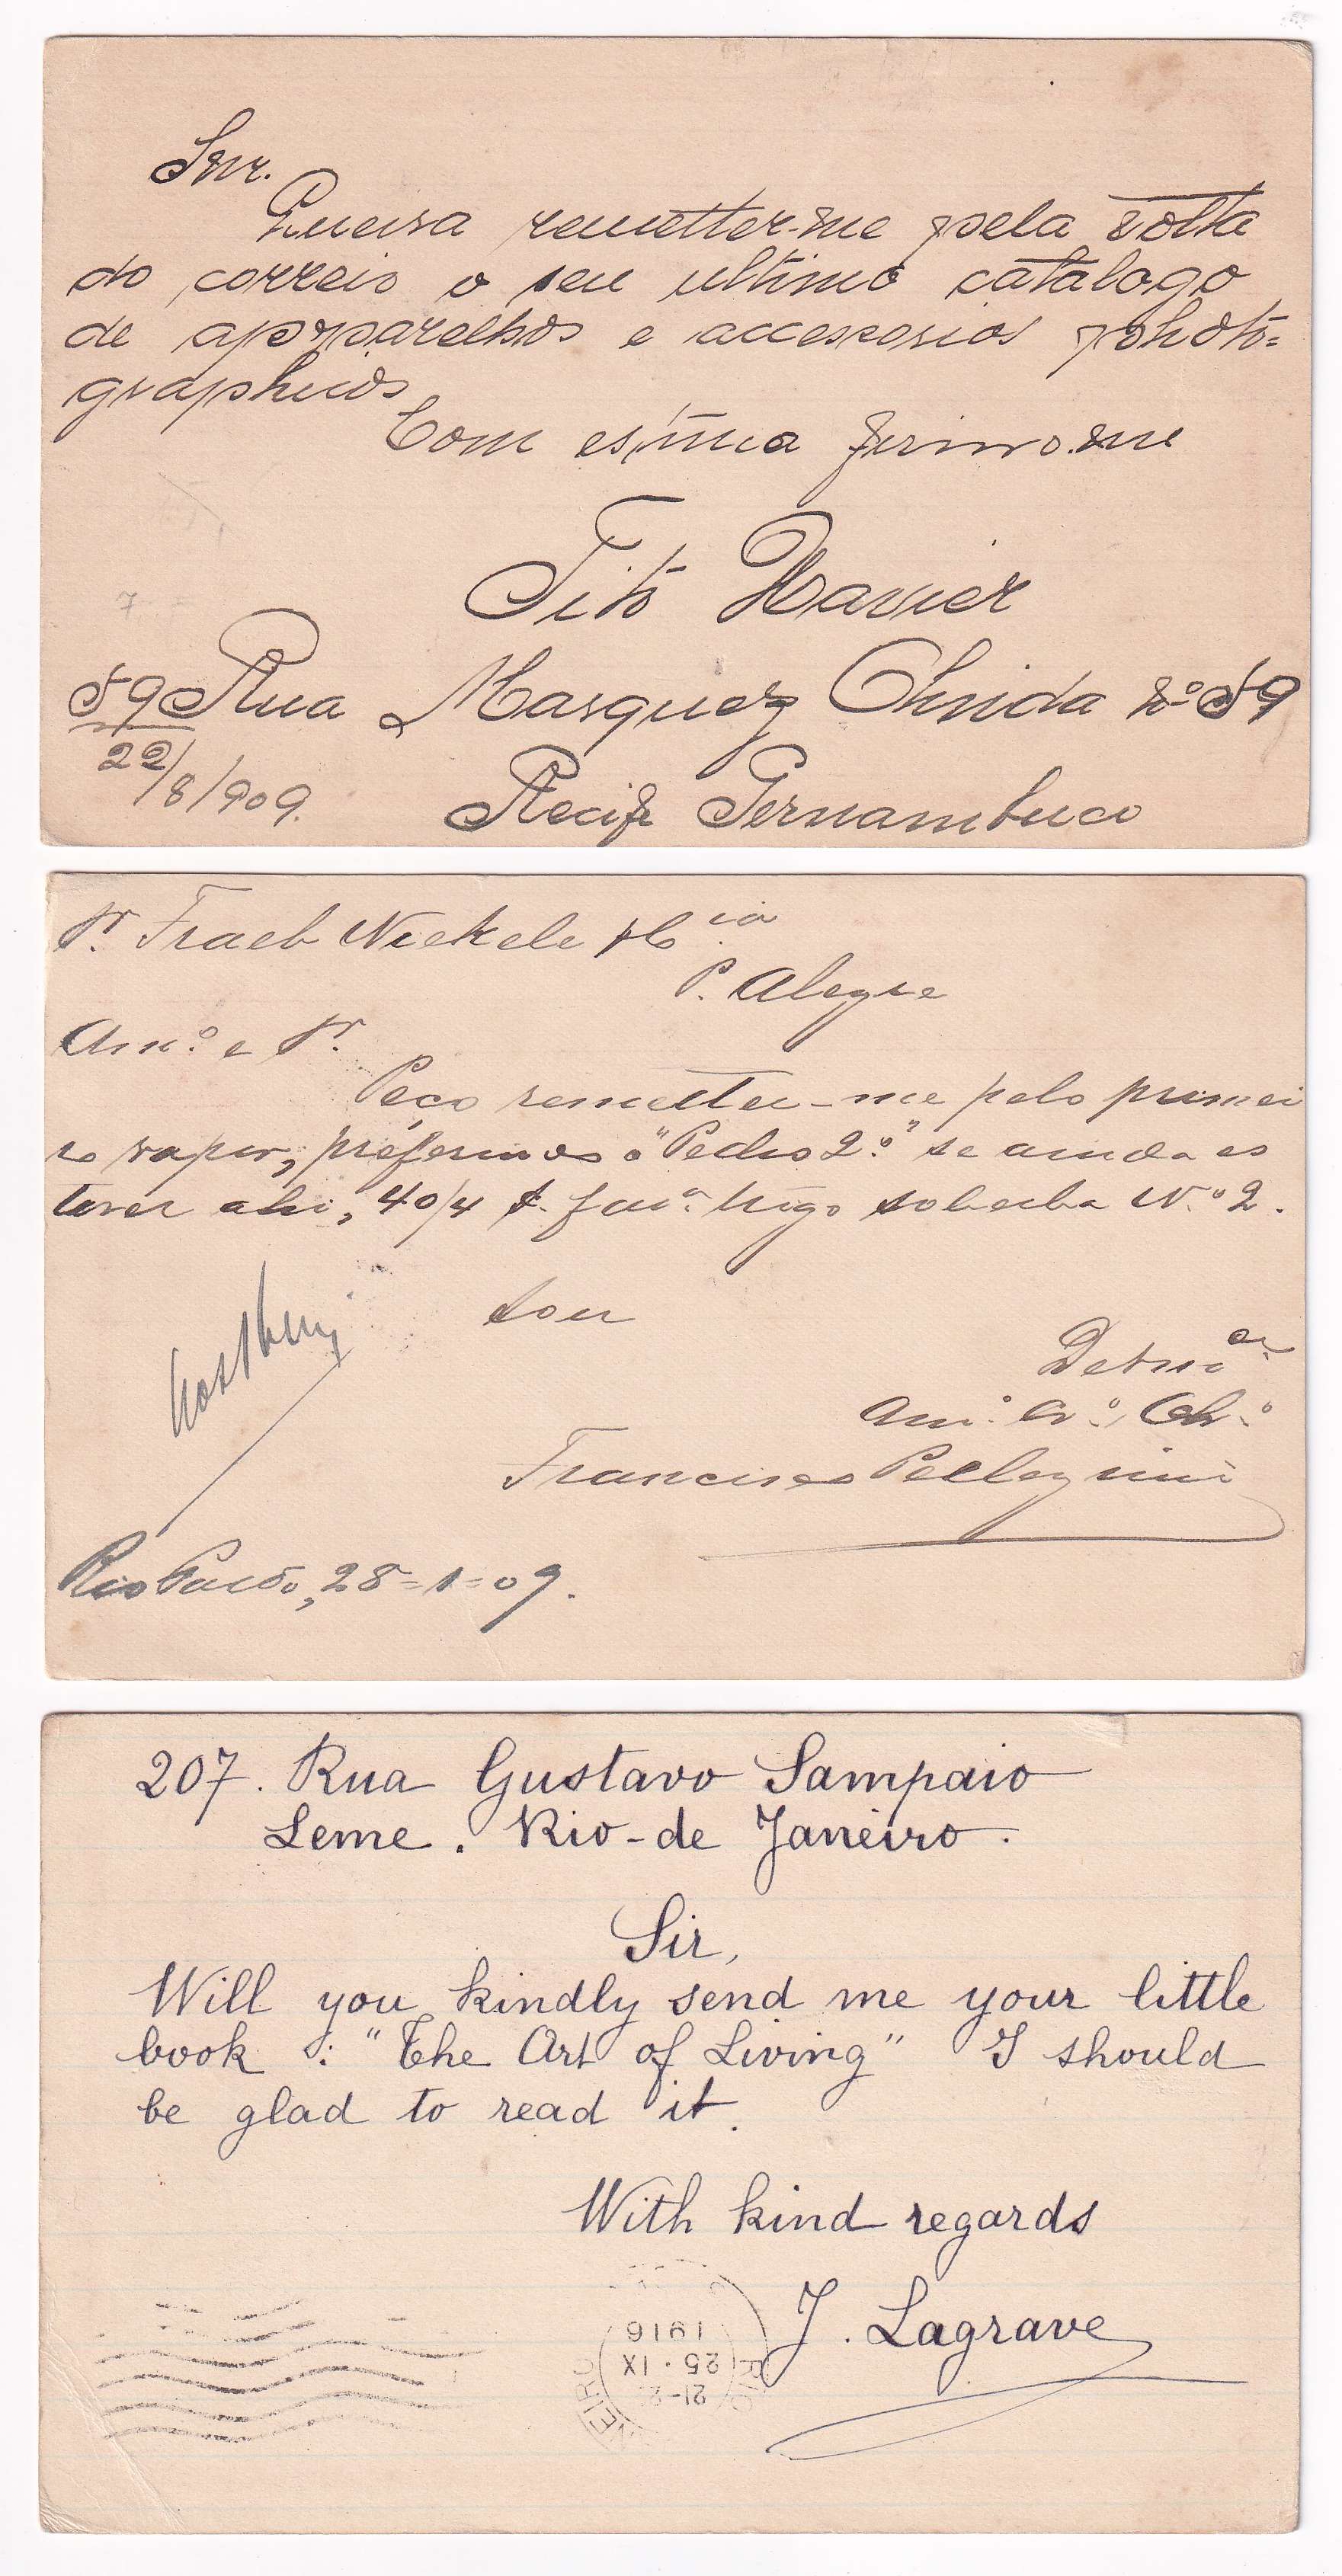 Snr.
Queira remetter-me pela volta
do correio o seu ultimo catalogo
de apparelhos e accessorios photo=
graphicos
Com estima firmo-me
Tito Xavier
59 Rua Marquez Olinda nº 59
22/8/909.
Recife Pernambuco
Sr. Fraeb Nieckele & Cia
P. Alegre
Amº e Sr.
Peço remetter-me pelo primei
ro vapor, preferimos o "Pedro 2º" se ainda es
tiver ahi, 40/4 farª trigo soberba Nº 2.
Sou
Amº Crº Obº
Francisco Pellegrini
Rio Pardo, 28=1=09.
207. Rua Gustavo Sampaio
Leme. Rio-de Janeiro.
Sir,
Will you kindly send me your little
book : "The Art of Living" I should
be glad to read it.
With kind regards
J. Lagrave
1916
25·IX
21-